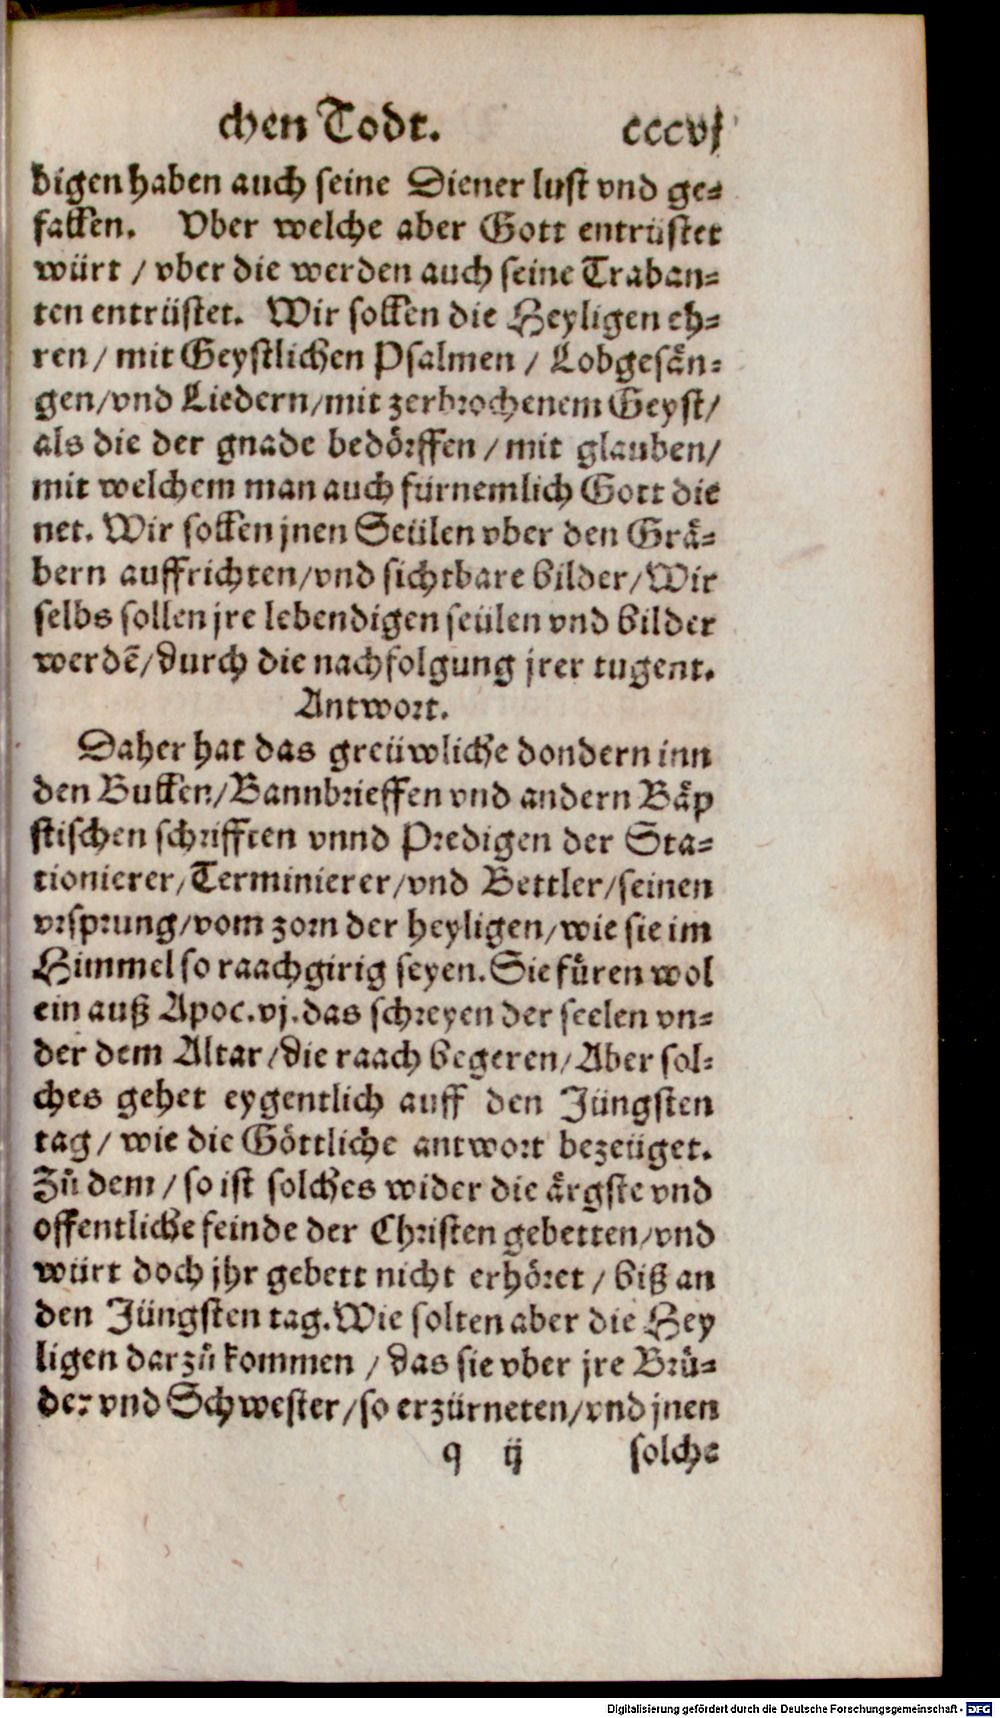 chen Todt. cccvj
digen haben auch seine Diener lust vnd ge⸗
fallen. Vber welche aber Gott entrüstet
würt / vber die werden auch seine Traban⸗
ten entrüstet. Wir sollen die Heyligen eh⸗
ren / mit Geystlichen Psalmen / Lobgesaͤn⸗
gen/vnd Liedern/mit zerbrochenem Geyst/
als die der gnade bedoͤrffen / mit glauben/
mit welchem man auch fürnemlich Gott die
net. Wir sollen jnen Seülen vber den Graͤ⸗
bern auffrichten/vnd sichtbare bilder/Wir
selbs sollen jre lebendigen seülen vnd bilder
werdẽ/durch die nachfolgung jrer tugent.
Antwort.
Daher hat das greüwliche dondern inn
den Bullen/Bannbrieffen vnd andern Baͤp
stischen schrifften vnnd Predigen der Sta⸗
tionierer/Terminierer/vnd Bettler/seinen
vrsprung/vom zorn der heyligen/wie sie im
Himmel so raachgirig seyen. Sie fuͤren wol
ein auß Apoc. vj. das schreyen der seelen vn⸗
der dem Altar/die raach begeren/Aber sol⸗
ches gehet eygentlich auff den Jüngsten
tag/ wie die Göttliche antwort bezeüget.
Zuͦ dem / so ist solches wider die aͤrgste vnd
offentliche feinde der Christen gebetten/vnd
würt doch jhr gebett nicht erhoͤret / biß an
den Jüngsten tag. Wie solten aber die Hey
ligen darzuͦ kommen / das sie vber jre Bruͤ⸗
der vnd Schwester/so erzürneten/vnd jnen
q ij solche
Digitalisierung gefördert durch die Deutsche Forschungsgemeinschaft - DFG